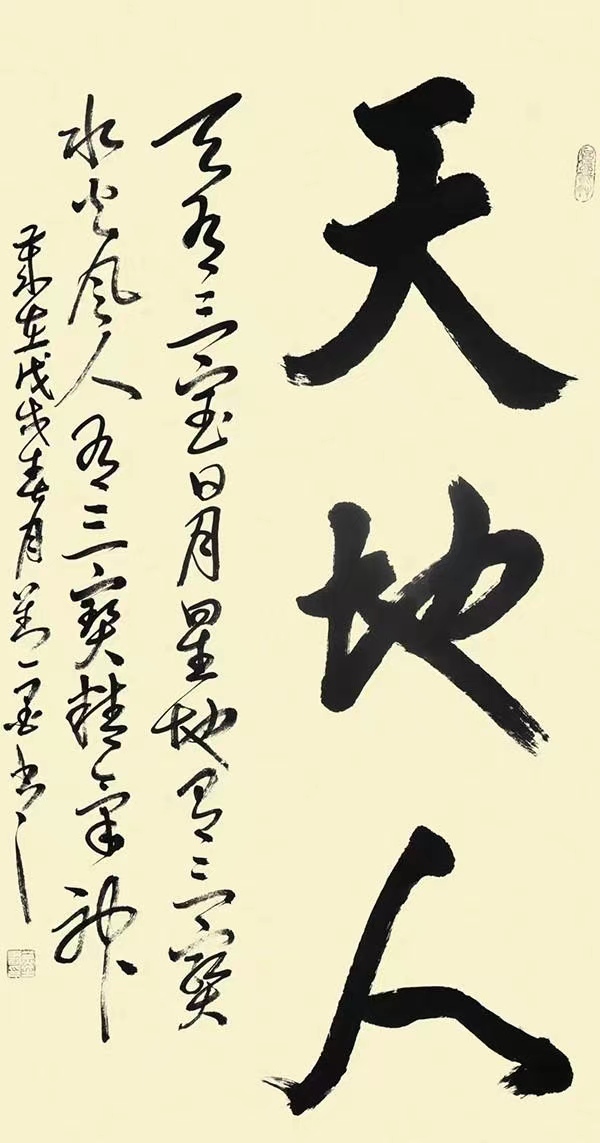 天地人
天有三宝日月星地有三寶
水火风人有三寶精氣神
歲在戊戌春月一墨书